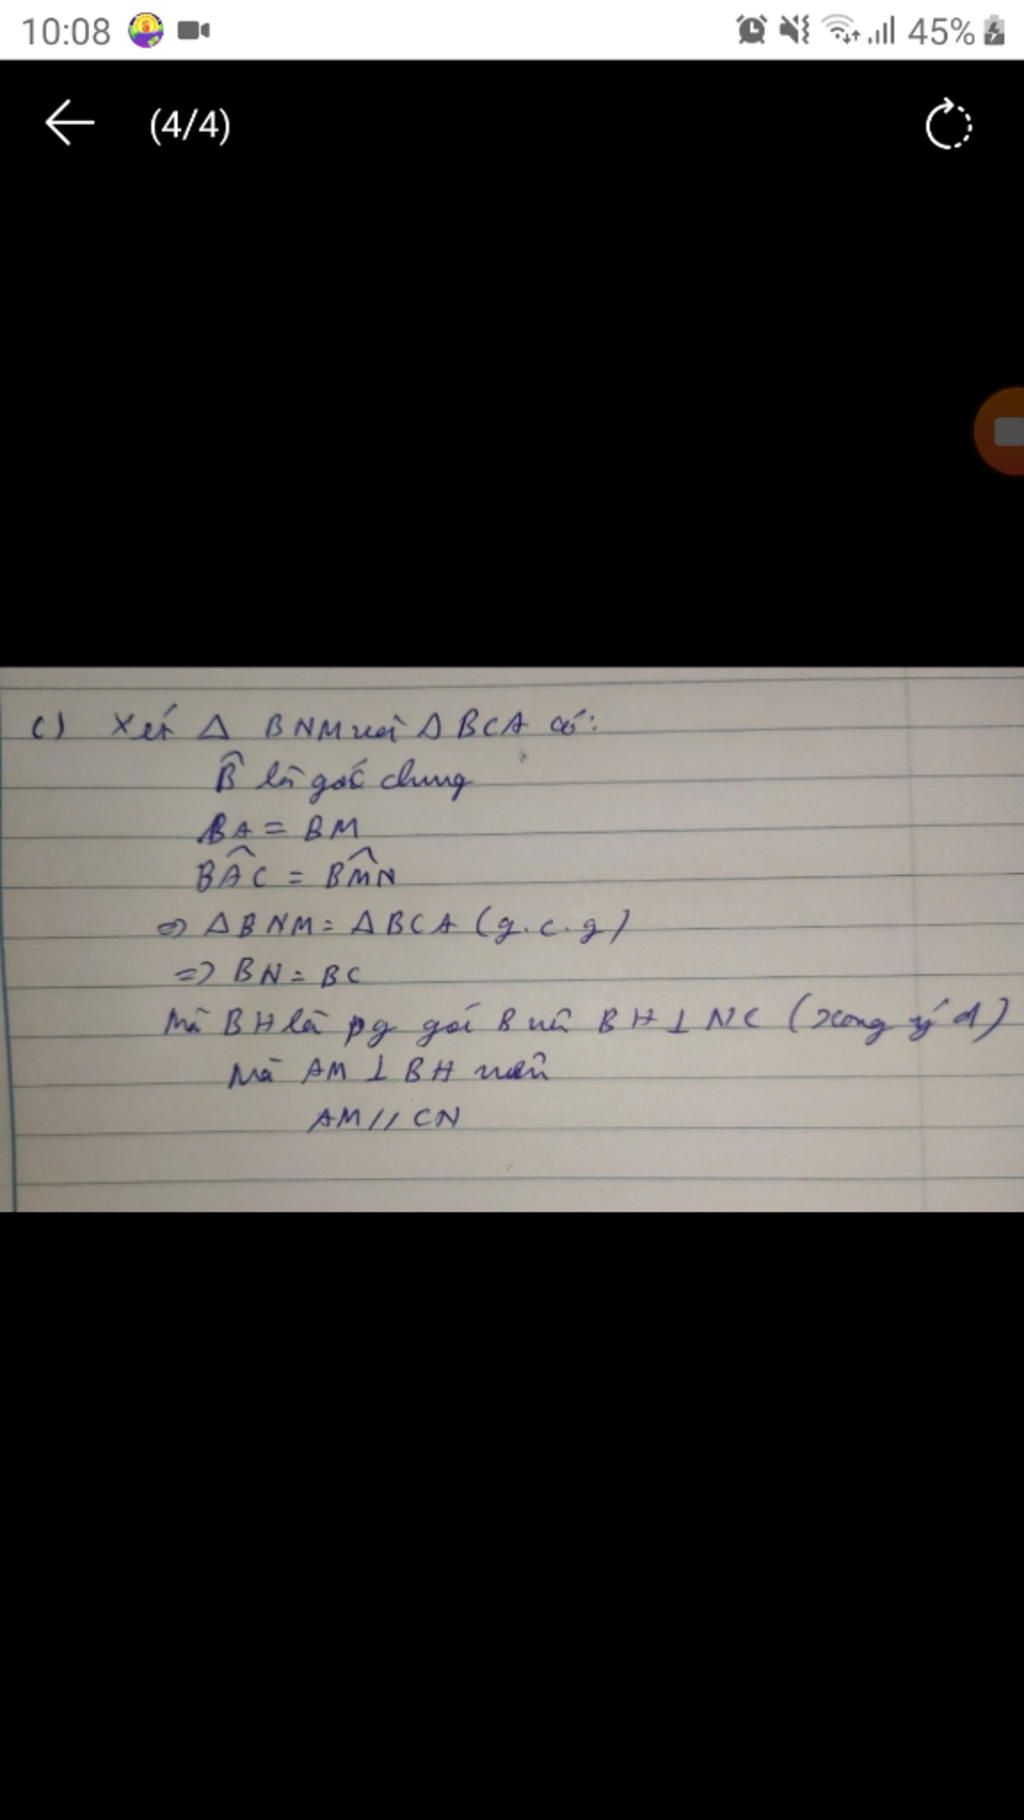 10:08
45%
(4/4)
c) Xét Δ BNM với Δ BCA có:
B̂ là góc chung
BA = BM
BÂC = BM̂N
=> Δ BNM = Δ BCA (g.c.g)
=> BN = BC
Mà BH là pg góc B nên BH ⊥ NC (xong ý d)
Mà AM ⊥ BH nên
AM // CN